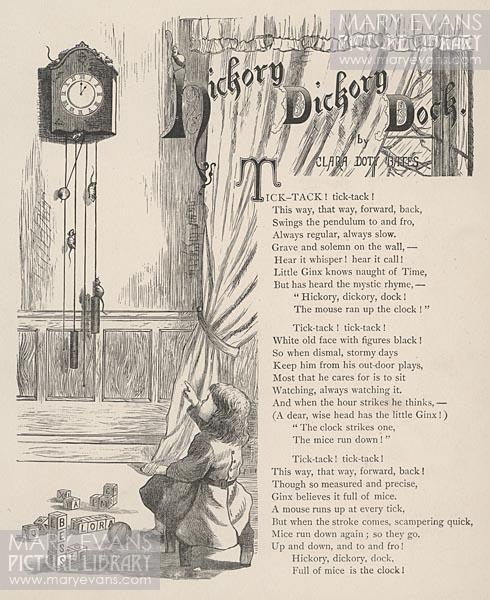 MARY EVANS
PICTURE LIBRARY
www.maryevans.com
Hickory
Dickory
Dock.
by
CLARA DOTY BATES.
TICK-TACK! tick-tack!
This way, that way, forward, back,
Swings the pendulum to and fro,
Always regular, always slow.
Grave and solemn on the wall, —
Hear it whisper! hear it call!
Little Ginx knows naught of Time,
But has heard the mystic rhyme, —
"Hickory, dickory, dock!
The mouse ran up the clock!"
Tick-tack! tick-tack!
White old face with figures black!
So when dismal, stormy days
Keep him from his out-door plays,
Most that he cares for is to sit
Watching, always watching it.
And when the hour strikes he thinks, —
(A dear, wise head has the little Ginx!)
"The clock strikes one,
The mice run down!"
Tick-tack! tick-tack!
This way, that way, forward, back!
Though so measured and precise,
Ginx believes it full of mice.
A mouse runs up at every tick,
But when the stroke comes, scampering quick,
Mice run down again; so they go,
Up and down, and to and fro!
Hickory, dickory, dock,
Full of mice is the clock!
A
B
E
S
LORA
MARY EVANS
PICTURE LIBRARY
www.maryevans.com